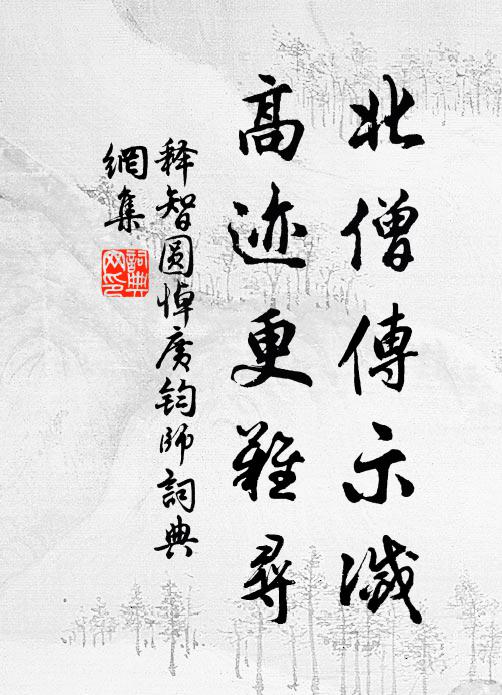 北僧傳示滅
高迹更難尋
释智圆悼廣鈞师詞典
網集
詞典
网印